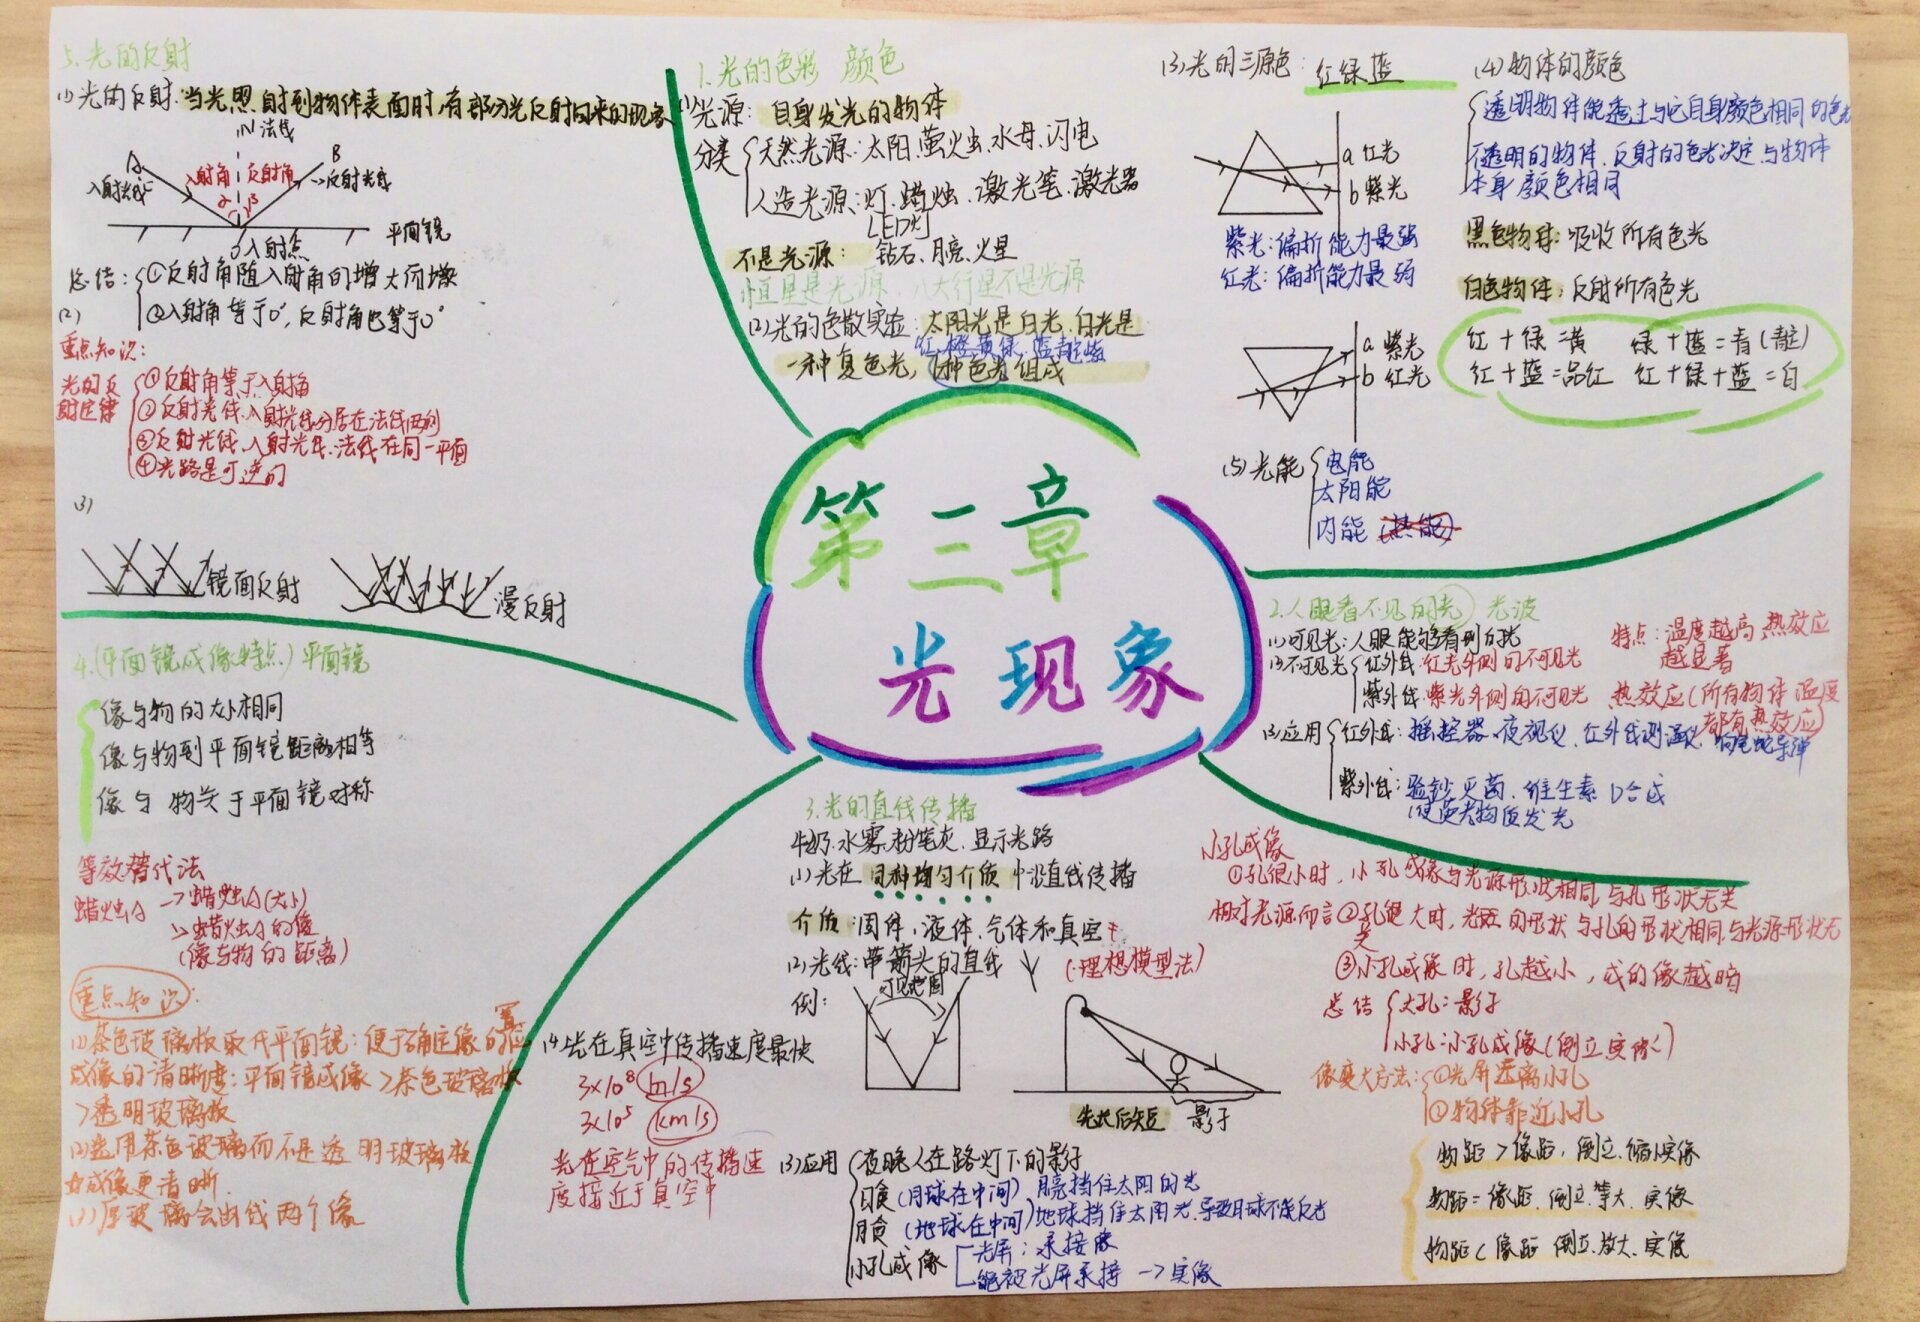 第三章
光现象
1.光的色彩 颜色
(1)光源: 自身发光的物体
分类
天然光源:太阳、萤火虫、水母、闪电
人造光源:灯、蜡烛、激光笔、激光器
[LED灯]
不是光源: 钻石、月亮、火星
恒星是光源、八大行星不是光源
(2)光的色散实验:太阳光是白光,白光是
红橙黄绿蓝靛紫
一种复色光,7种色光组成
(3)光的三原色: 红绿蓝
a 红光
b 紫光
紫光:偏折能力最强
红光:偏折能力最弱
a 紫光
b 红光
(4)物体的颜色
透明物体能透过与它自身颜色相同的色光
不透明的物体、反射的色光决定、与物体
本身颜色相同
黑色物体:吸收所有色光
白色物体:反射所有色光
红+绿=黄 绿+蓝=青(靛)
红+蓝=品红 红+绿+蓝=白
(5)光能
电能
太阳能
内能 (热能)
2.人眼看不见的光 光波
(1)可见光:人眼能够看到的光
(2)不可见光
红外线:红光外侧的不可见光
紫外线:紫光外侧的不可见光
特点:温度越高,热效应
越显著
热效应(所有物体温度
都有热效应)
(3)应用
红外线:摇控器、夜视仪、红外线测温仪、响尾蛇导弹
紫外线:验钞、灭菌、维生素D合成
(使荧光物质发光
3.光的直线传播
牛奶、水雾、粉笔灰、显示光路
(1)光在 同种均匀介质 中沿直线传播
介质:固体、液体、气体和真空
(2)光线:带箭头的直线
(理想模型法)
例:
可见范围
先长后短
影子
(3)应用
夜晚人在路灯下的影子
日食(月球在中间) 月亮挡住太阳的光
月食(地球在中间)地球挡住太阳光,导致月球不能反光
小孔成像
光屏:承接像
能被光屏承接→实像
(4)光在真空中传播速度最快
3×10⁸ m/s
3×10⁵ km/s
光在空气中的传播速
度接近于真空中
小孔成像
①孔很小时,小孔成像与光源形状相同,与孔形状无关
相对光源而言②孔很大时,光斑的形状与孔的形状相同,与光源形状无
关
③小孔成像时,孔越小,成的像越暗
总结
大孔:影子
小孔:小孔成像(倒立实像)
像变大方法:
①光屏远离小孔
①物体靠近小孔
物距>像距,倒立、缩小实像
物距=像距、倒立、等大、实像
物距<像距 倒立、放大、实像
4.(平面镜成像特点)平面镜
像与物的大小相同
像与物到平面镜距离相等
像与物关于平面镜对称
等效替代法
蜡烛A
→蜡烛A(大小)
→蜡烛A的像
(像与物的距离)
重点知识:
(1)茶色玻璃板取代平面镜:便于确定像的位置
成像的清晰度:平面镜成像>茶色玻璃板
>透明玻璃板
(2)选用茶色玻璃而不是透明玻璃板
成像更清晰
(3)厚玻璃会出线两个像
5.光的反射
(1)光的反射:当光照射到物体表面时,有部分光反射回来的现象
N 法线
A
B
入射光线
入射角
反射角
反射光线
α
β
平面镜
O入射点
总结:
①反射角随入射角的增大而增大
②入射角等于0°,反射角也等于0°
(2)
重点知识:
光的反
射定律
①反射角等于入射角
②反射光线、入射光线分居在法线两侧
③反射光线、入射光线、法线在同一平面
④光路是可逆的
(3)
镜面反射
漫反射